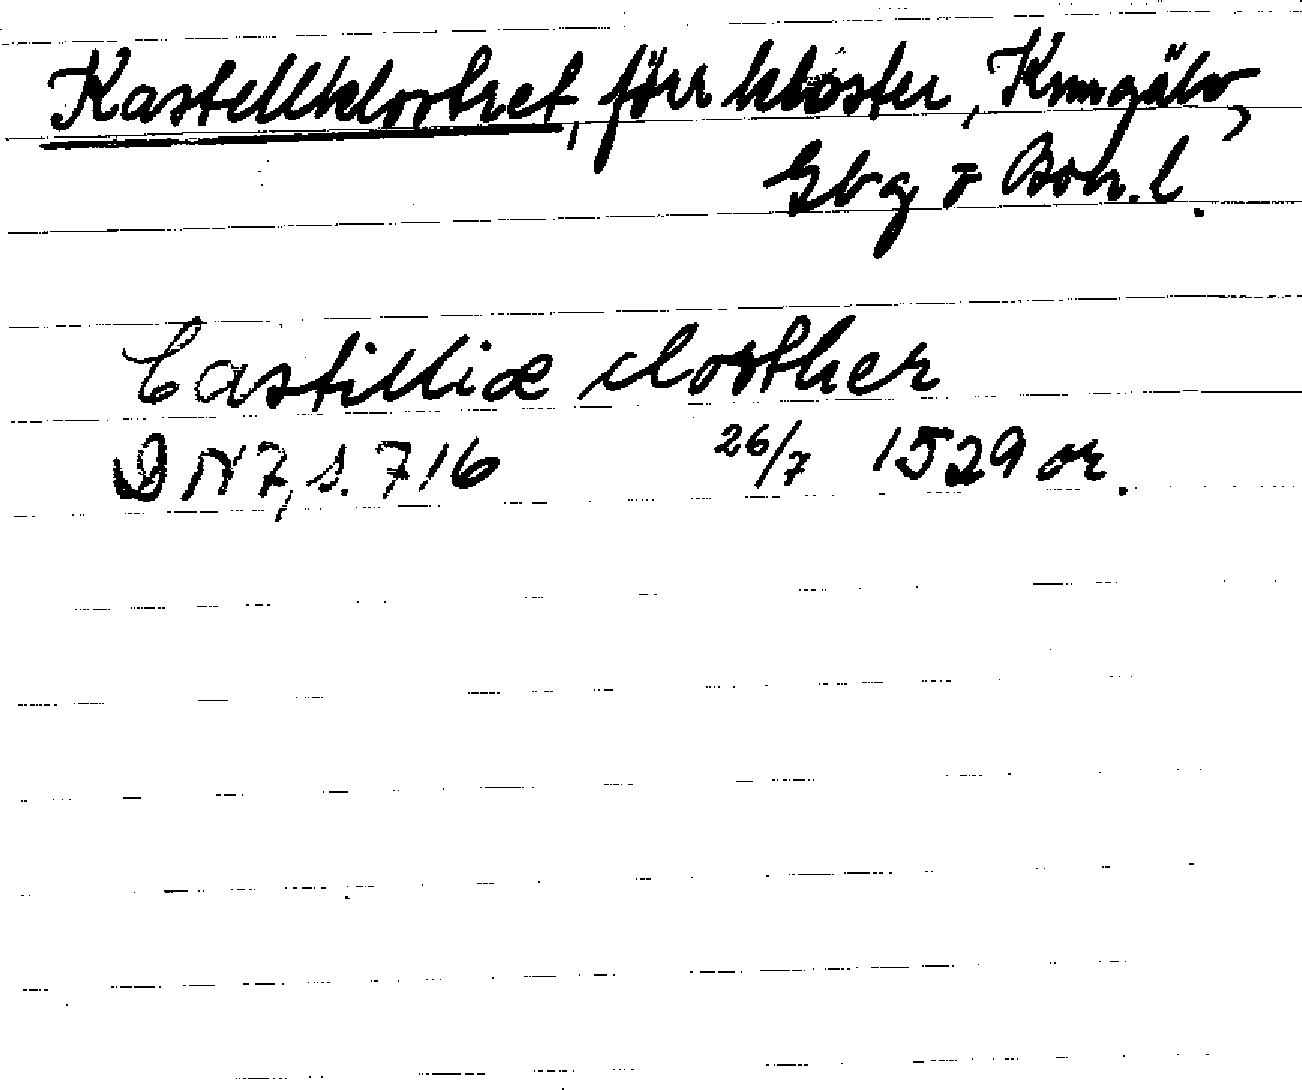 Kastellklostret, förr kloster, Kungälv,
Gbg o Boh. l.
Castilliæ closther
DN 7, s. 716 26/7 1529 or.